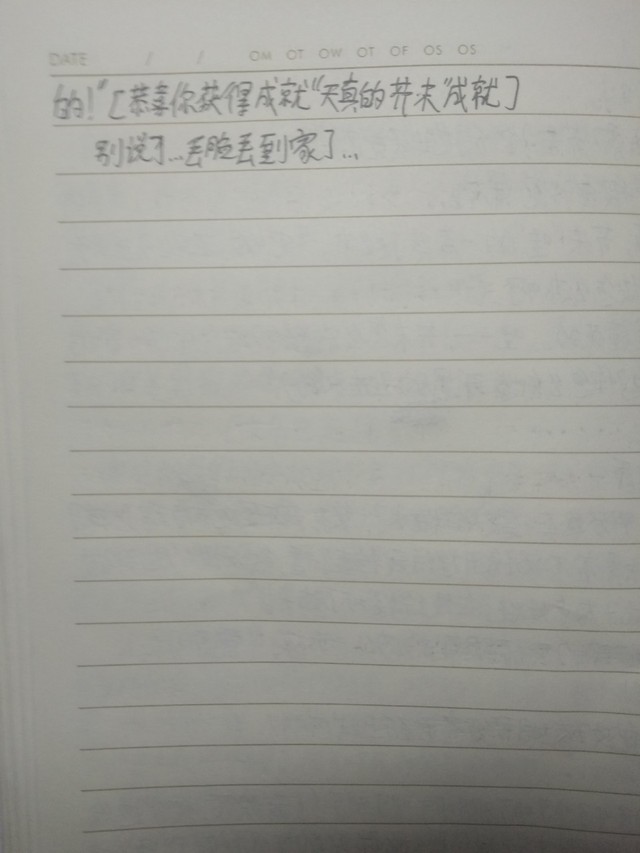 DATE / / OM OT OW OT OF OS OS
的！”[恭喜你获得成就“天真的芥末”成就]
别说了...丢脸丢到家了...